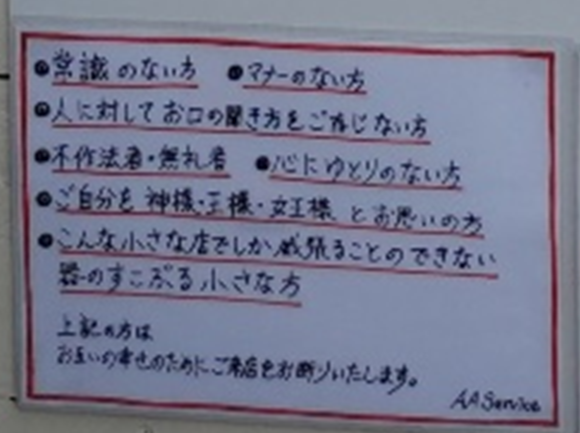 ●常識のない方 ●マナーのない方
●人に対してお口の聞き方をご存じない方
●不作法者・無礼者 ●心にゆとりのない方
●ご自分を神様・王様・女王様とお思いの方
●こんな小さな店でしか威張ることのできない
器のすこぶる小さな方
上記の方は
お互いの幸せのためにご来店をお断りいたします。
AAService